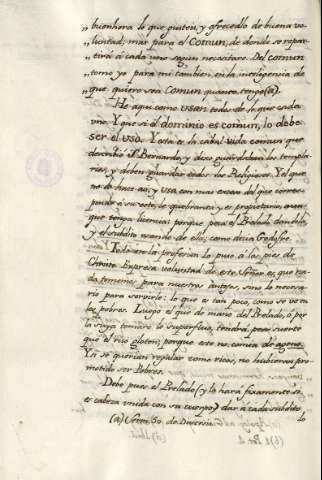 „ buenhora lo que gusten, y ofrecedlo de buena vo-
„ luntad; mas para el Comun, de donde se repar-
„ tirá á cada uno segun necesitare. Del comun
„ tomo yo para mi tambien, en la inteligencia de
„ que quiero sea Comun quanto tengo (a).
He aqui como usen todos de lo que cada
uno. Y que si el dominio es comun, lo debe
ser el uso. Y esta es la cabal vida comun que
describió S.n Bernardo, y dixo guardaban los templa-
rios, y deben guardar todos los Religiosos. Y el que
no lo hace asi, y usa con mas exceso del que corres-
ponde á su voto, lo quebranta, y es propietario, aun-
que tenga licencia: porque peca el Prelado dandola,
y el subdito usando de ella; como decia Godofre.
Todo en la profesion lo puso á los pies de
Christo. Expresa voluntad de este Señor es, que na-
da tomemos para nuestros antojos, sino lo necesa-
rio para servirle: lo que es tan poco, como se ve en
los pobres. Luego el que de mano del Prelado, ó por
la suya tomare lo superfluo, tendrá peor suerte
que el rico gloton; porque este no comia de ageno.
Y si se querian regalar como ricos, no hubieran pro-
metido ser Pobres.
Debe pues el Prelado (y lo hará fixamente si
es cabeza unida con su cuerpo) dar á cada subdito
lo
(a) Serm. 50. de Diversis